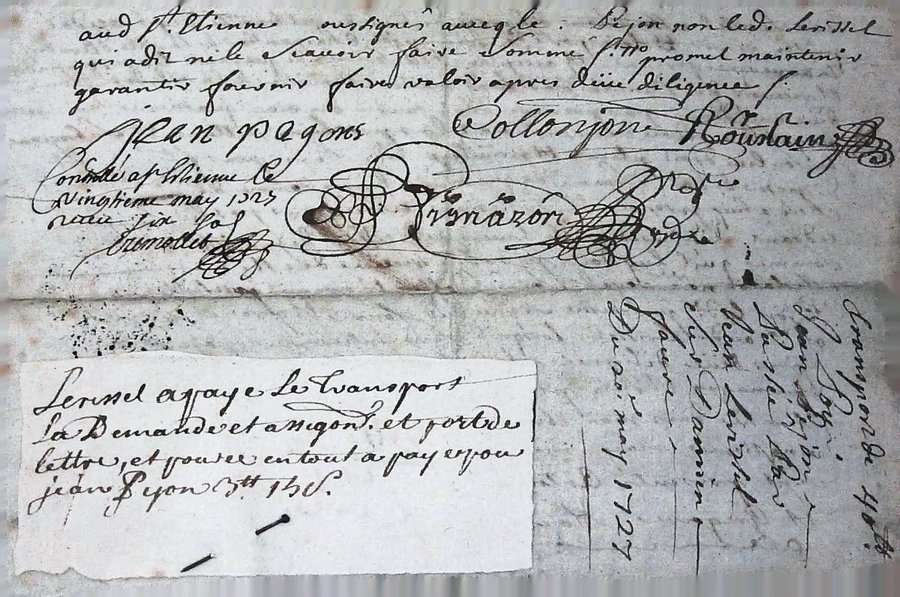 aud St. Etienne sousignés avecq le . Peyon non led. Lerissel
qui a dit ne le scavoir faire Sommé promet maintenir
garantir fournir faire valoir apres düe diligence
jean pagons Collonjon
Controllé a St Etienne le
vingtieme may 1727
receu six sol
Lerissel a paye Le Transport
La Demande et assigon. et port de
lettre, et pouree en tout a payer pou
jean Peyon 3tt 15s.
Transport de 40tt
jean
Passée par
jean Lerissel
Sur Damien
faure
Du 20 may 1727